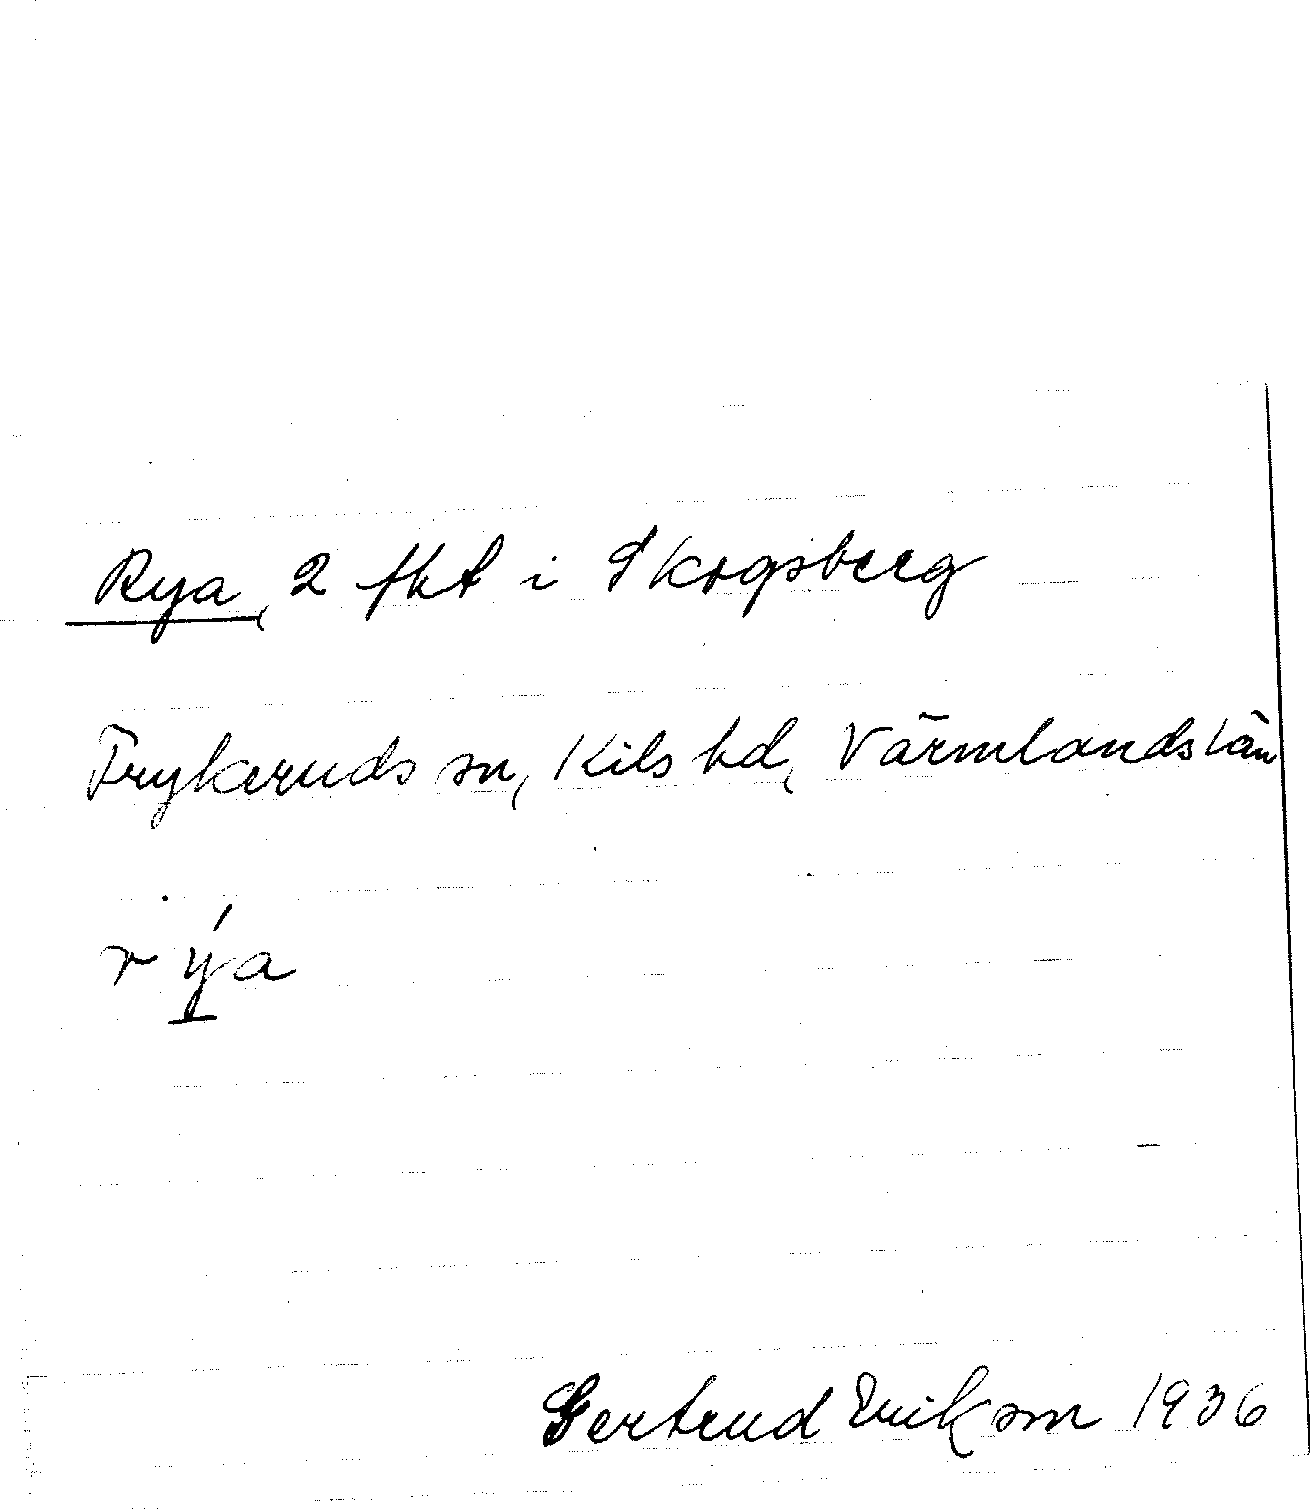 Rya, 2 fht i Skogsberg
Frykeruds sn, Kils hd, Värmlands län
r ýa
Gertrud Erikson 1936